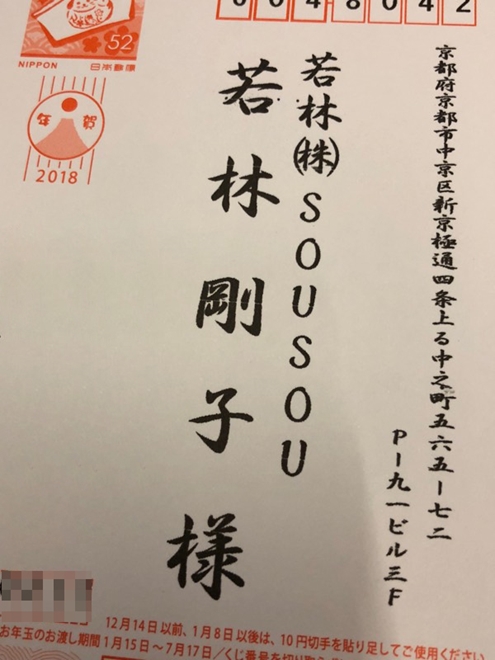 0048042
52
NIPPON 日本郵便
年賀
2018
京都府京都市中京区新京極通四条上る中之町五六五ー七二
Pー九一ビル三F
若林㈱SOUSOU
若林剛子様
12月14日以前、1月8日以後は、10円切手を貼り足してご使用ください
お年玉のお渡し期間 1月15日〜7月17日/くじ番号を切り取